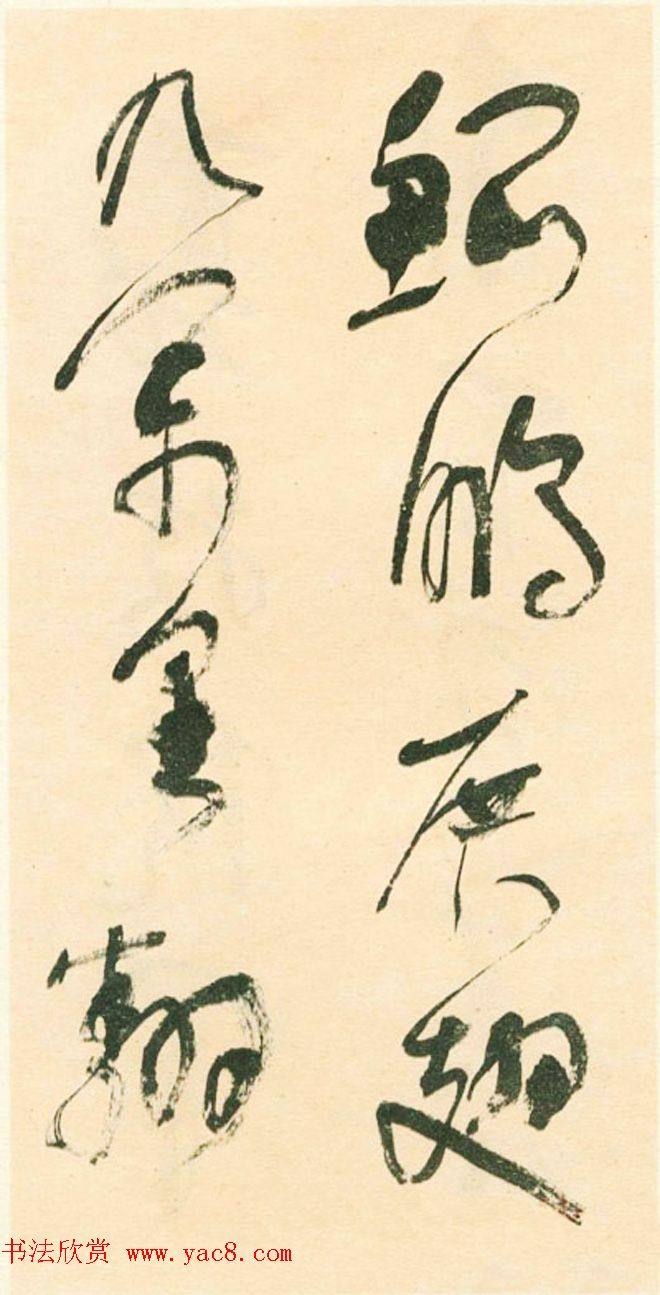 鲲鹏展翅
九万里翻
书法欣赏 www.yac8.com